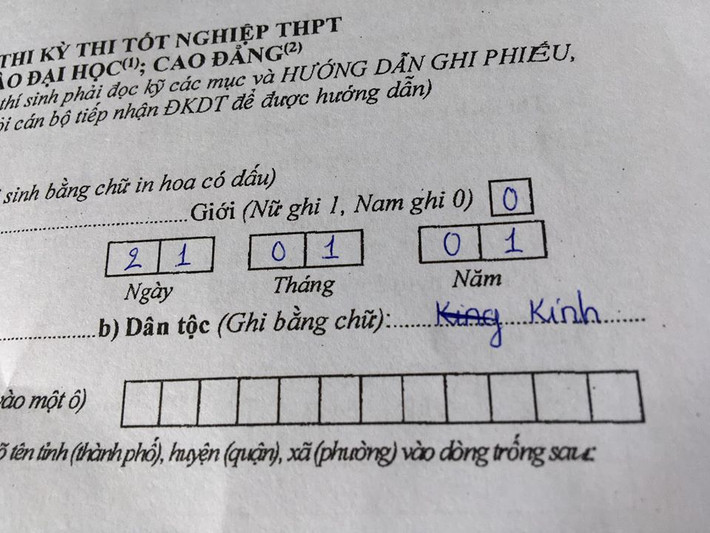 THI KỲ THI TỐT NGHIỆP THPT
ÀO ĐẠI HỌC(1); CAO ĐẲNG(2)
thí sinh phải đọc kỹ các mục và HƯỚNG DẪN GHI PHIẾU,
ỏi cán bộ tiếp nhận ĐKDT để được hướng dẫn)
sinh bằng chữ in hoa có dấu)
Giới (Nữ ghi 1, Nam ghi 0) 0
2 1 0 1 0 1
Ngày Tháng Năm
b) Dân tộc (Ghi bằng chữ): King Kính
vào một ô)
õ tên tỉnh (thành phố), huyện (quận), xã (phường) vào dòng trống sau: